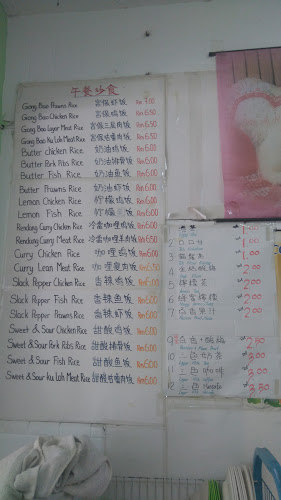 午餐炒食
Giong Bao Prawns Rice 宫保虾饭 Rm 7.00
Giong Bao Chicken Rice 宫保鸡饭 Rm 6.50
Giong Bao Layer Meat Rice 宫保三层肉饭 Rm 6.50
Giong Bao Ku Loh Meat Rice 宫保咕嚕肉饭 Rm 6.50
Butter Chicken Rice 奶油鸡饭 Rm 6.00
Butter Pork Ribs Rice 奶油排骨饭 Rm 6.00
Butter Fish Rice 奶油鱼饭 Rm 6.00
Butter Prawns Rice 奶油虾饭 Rm 6.00
Lemon Chicken Rice 柠檬鸡饭 Rm 6.00
Lemon Fish Rice 柠檬鱼饭 Rm 6.00
Rendang Curry Chicken Rice 冷當咖哩鸡饭 Rm 6.50
Rendang Curry Meat Rice 冷當咖哩羊肉饭 Rm 6.50
Curry Chicken Rice 咖哩鸡饭 Rm 6.00
Curry Lean Meat Rice 咖哩瘦肉饭 Rm 6.50
Black Pepper Chicken Rice 香辣鸡饭 Rm 6.00
Black Pepper Fish Rice 香辣鱼饭 Rm 6.00
Black Pepper Prawns Rice 香辣虾饭 Rm 6.00
Sweet & Sour Chicken Rice 甜酸鸡饭 Rm 6.00
Sweet & Sour Pork Ribs Rice 甜酸排骨饭 Rm 6.00
Sweet & Sour Fish Rice 甜酸鱼饭 Rm 6.00
Sweet & Sour Ku Loh Meat Rice 甜酸咕嚕肉饭 Rm 6.00
1.00
2 1.00
3 1.00
4 2.00
5 柠檬茶 2.00
6 2.00
7 2.00
9 2.80
10 三色奶茶 3.30
11 三色咖啡 3.00
12 三色 3.50